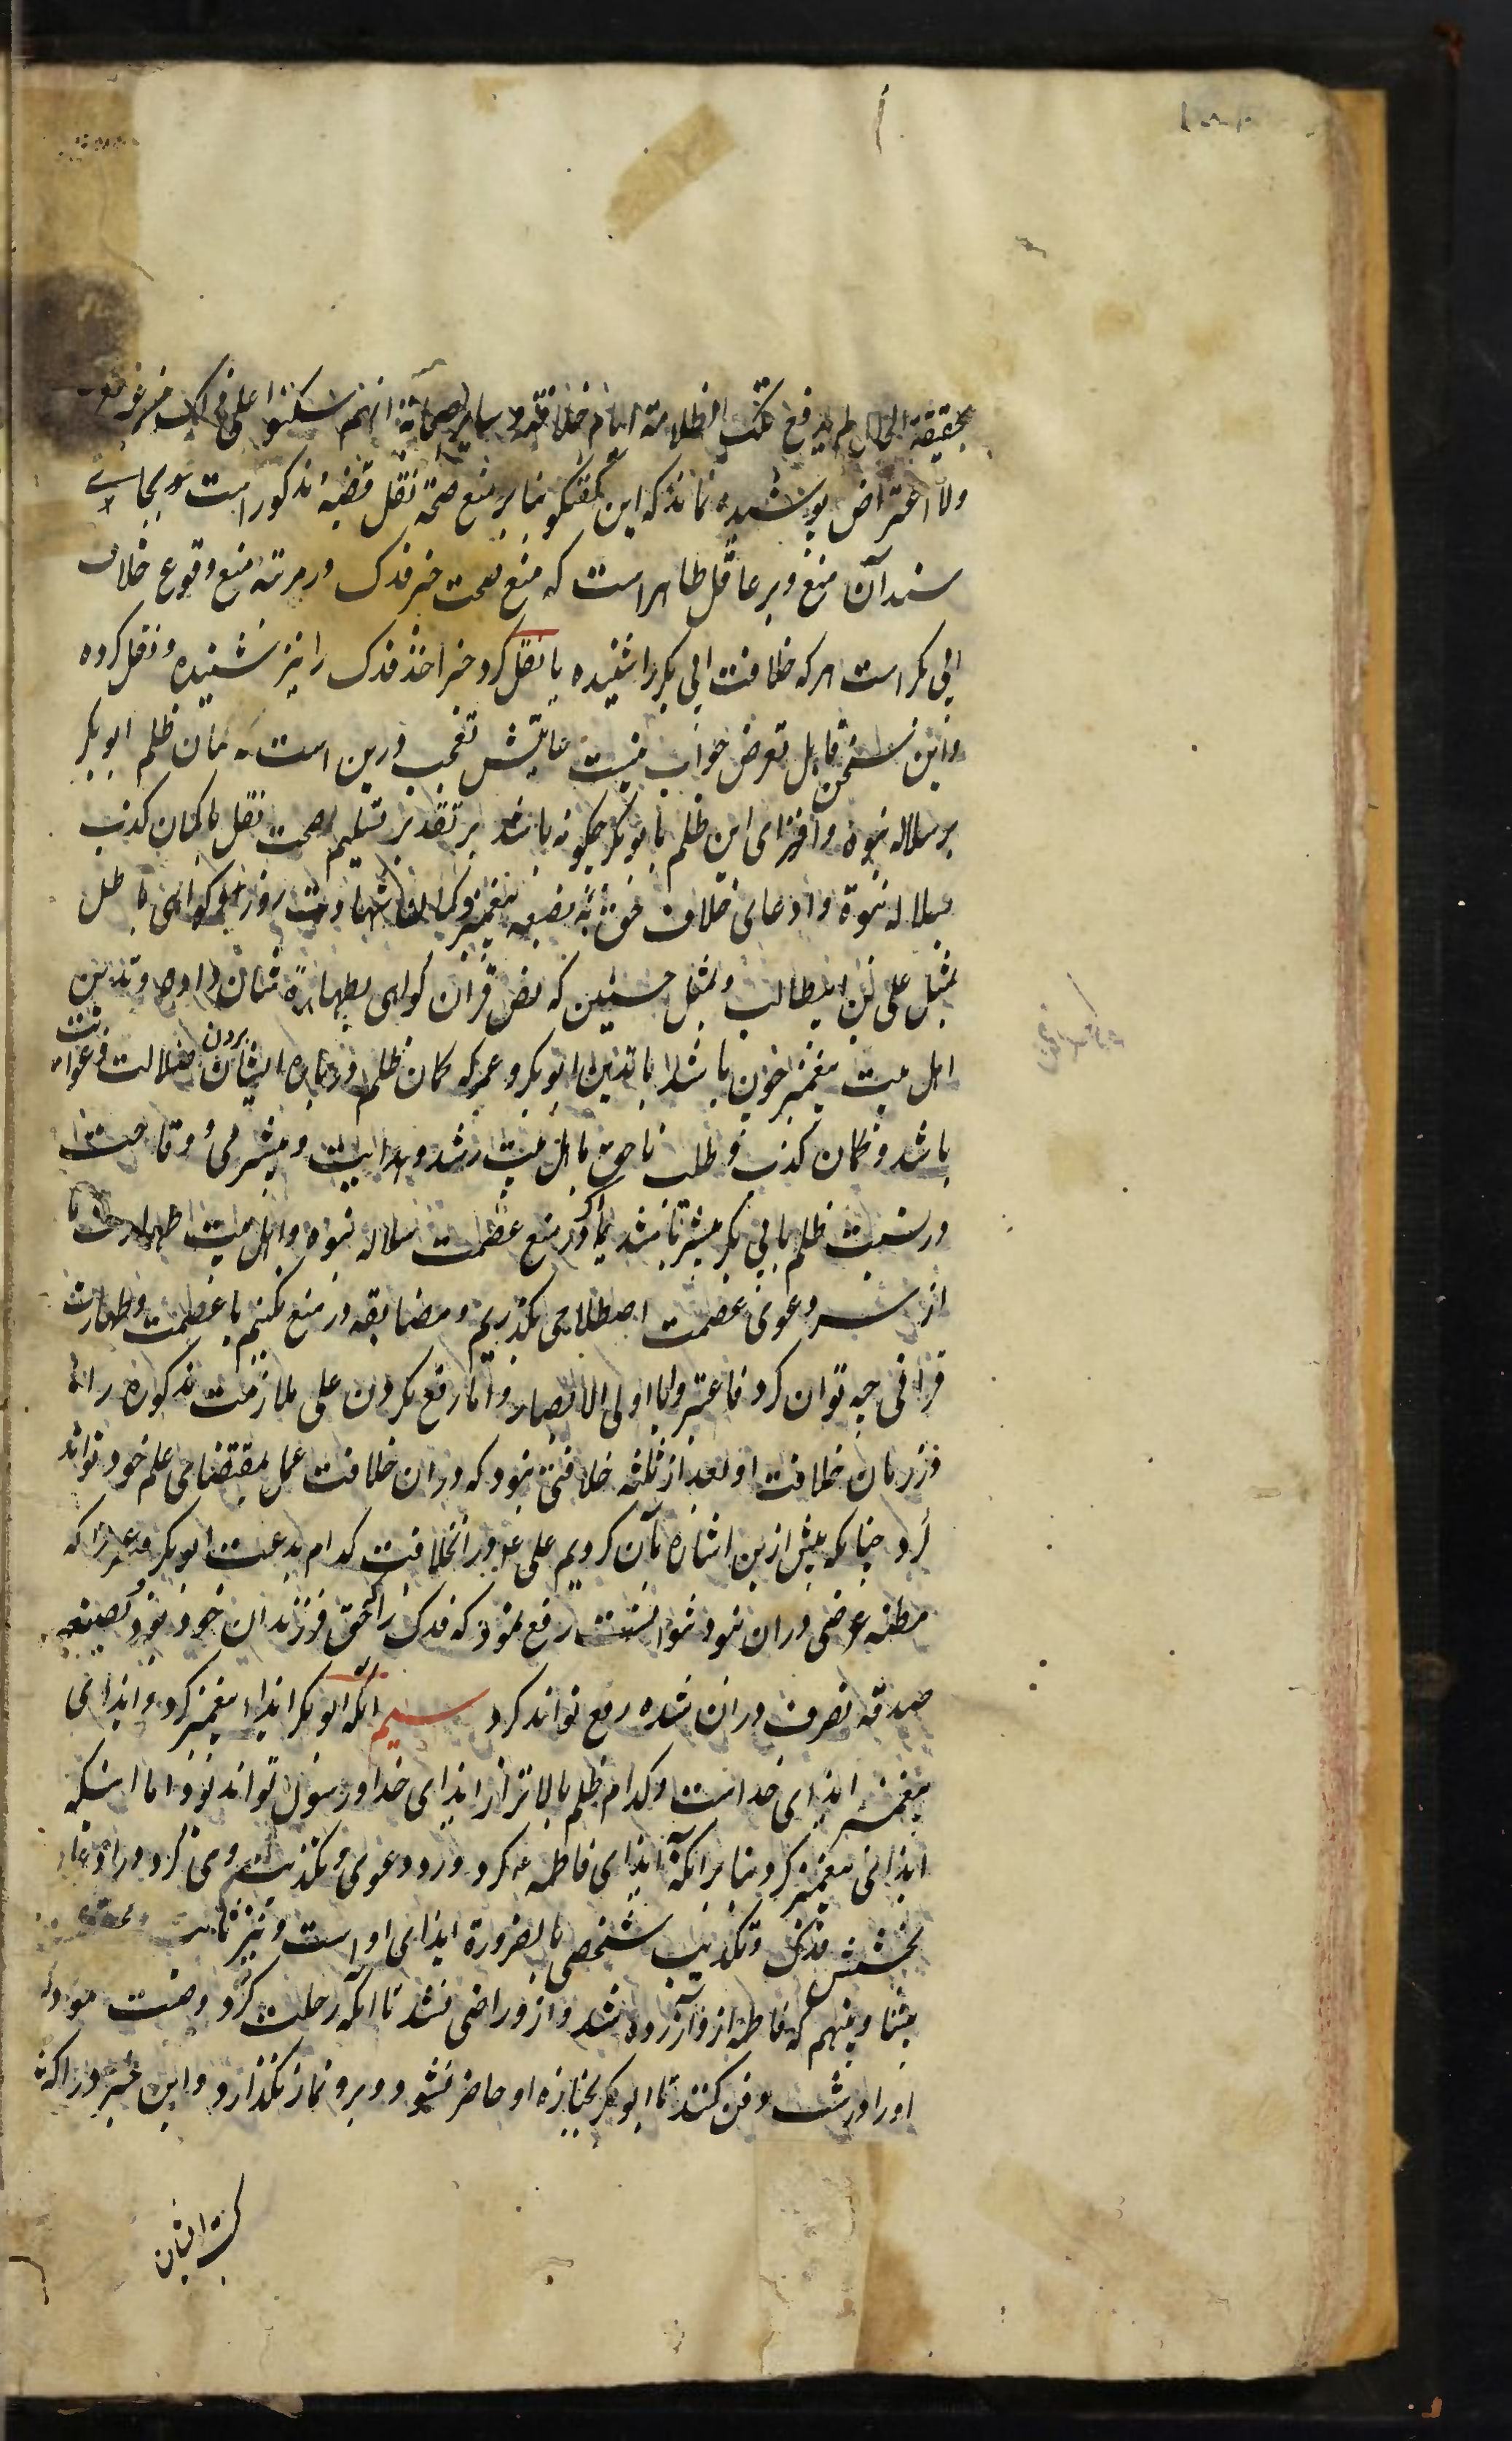 بحقیقة الحال لم لم یدفع تلک الظلامة ایام خلافته و سایر الصحابة انهم سکتوا علی ذلک من غیر منع
ولا اعتراض پوشیده نماند که این گفتگو بنا بر منع صحة نقل قضیه مذکور است و بجای
سند آن منع و بر عاقل ظاهر است که منع صحت خبر فدک در مرتبه منع وقوع خلافت
ابی بکر است هر که خلافت ابی بکر را شنیده یا نقل کرد خبر اخذ فدک را نیز شنیده و نقل کرده
و این سخن قابل تعرض جواب نیست غایتش تعجب درین است که گمان ظلم ابو بکر
بر سلاله نبوه و افترای این ظلم بابو بکر چگونه باشد بر تقدیر تسلیم صحت نقل با گمان کذب
بسلاله نبوة و ادعای خلاف حق به بضعه پیغمبر و شهادت زور و گواهی باطل
بمثل علی بن ابیطالب و بمثل حسنین که نص قرآن گواهی بطهارة شان داده و تدین
اهل بیت پیغمبر خون باشد با تدین ابو بکر و عمر که گمان ظلم درباره ایشان بردن ضلالت و غوایت
باشد و گمان کذب و طلب ناحق باهل بیت رشد و هدایت و بیشرمی و وقاحت
در نسبت ظلم بابی بکر بیشتر باشد یا در منع عصمت سلاله نبوه و اهل بیت طهارت ما
از سر دعوی عصمت اصطلاحی بگذریم و مضایقه در منع نکنیم با عصمت و طهارت
قرآنی چه توان کرد فاعتبروا یا اولی الابصار و اما رفع نکردن علی ملازمت مذکوره را
در زمان خلافت او بعد از ثلثه خلافتی نبود که در ان خلافت عمل بمقتضای علم خود تواند
کرد چنانکه پیش ازین اشاره بآن کردیم علی ع در انخلافت کدام بدعت ابو بکر و عمر را که
مظنه غرضی دران نبود توانست رفع نمود که فدک را که حق فرزندان خود بود بصیغه
صدقه تصرف دران شده رفع تواند کرد سیم آنکه ابو بکر ایذاء پیغمبر کرد و ایذای
پیغمبر ایذای خداست و کدام ظلم بالاتر از ایذای خدا و رسول تواند بود اما اینکه
ایذای پیغمبر کرد بنا بر آنکه ایذای فاطمه ع کرد و رد دعوی و تکذیب وی کرد در ادعای
بخشش فدک و تکذیب شخصی بالضرورة ایذای او است و نیز ثابت
بیننا و بینهم که فاطمه ازو آزرده شد و ازو راضی نشد تا آنکه رحلت کرد وصیت نمود که
او را در شب دفن کنند تا ابو بکر بجنازه او حاضر نشود و برو نماز نگذارد و این خبر در اکثر
کتب ایشان